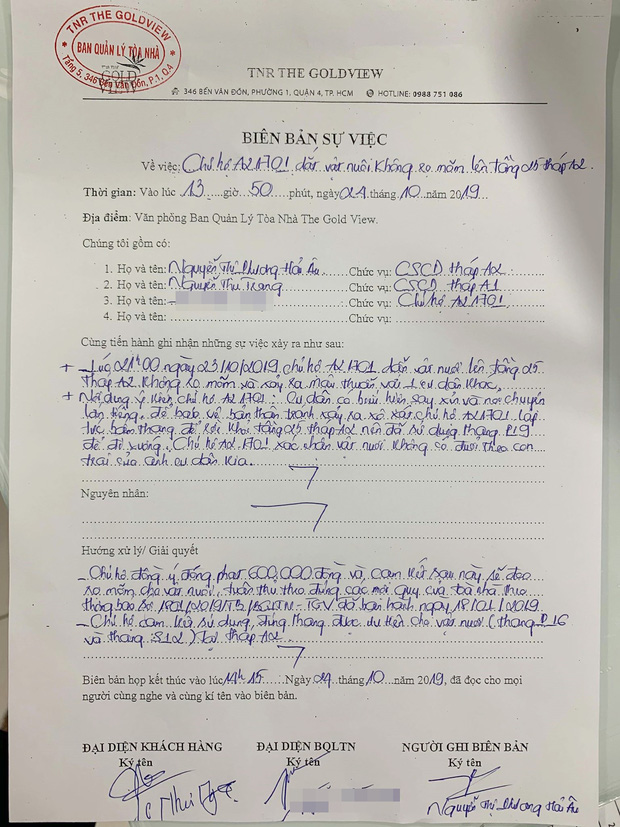 TNR THE GOLDVIEW
BAN QUẢN LÝ TÒA NHÀ
TNR THE
GOLD
VIEW
Tầng 5, 346 Bến Vân Đồn, P.1, Q.4
TNR THE GOLDVIEW
346 BẾN VÂN ĐỒN, PHƯỜNG 1, QUẬN 4, TP. HCM HOTLINE: 0988 751 086
BIÊN BẢN SỰ VIỆC
Về việc: Chủ hộ A21701 dắt vật nuôi không rọ mõm lên tầng 25 tháp A2.
Thời gian: Vào lúc 13 giờ 50 phút, ngày 24 tháng 10 năm 2019
Địa điểm: Văn phòng Ban Quản Lý Tòa Nhà The Gold View.
Chúng tôi gồm có:
1. Họ và tên: Nguyễn Thị Phương Hải Âu Chức vụ: CSCD tháp A2
2. Họ và tên: Nguyễn Thu Trang Chức vụ: CSCD tháp A1
3. Họ và tên: Chức vụ: Chủ hộ A21701
4. Họ và tên: Chức vụ:
Cùng tiến hành ghi nhận những sự việc xảy ra như sau:
+ Lúc 21h00 ngày 23/10/2019, chủ hộ A21701 dắt vật nuôi lên tầng 25
tháp A2 không rọ mõm và xảy ra mâu thuẫn với 1 cư dân khác.
+ Nội dung ý kiến chủ hộ A21701: Cư dân có biểu hiện say xỉn và nói chuyện
lớn tiếng, để bảo vệ bản thân tránh xảy ra xô xát chủ hộ A21701 lập
tức bấm thang để rời khỏi tầng 25 tháp A2 nên đã sử dụng thang P19
để đi xuống. Chủ hộ A21701 xác nhận vật nuôi không có đuổi theo con
trai của anh cư dân kia.
Nguyên nhân:
Hướng xử lý/ Giải quyết
- Chủ hộ đồng ý đóng phạt 600,000 đồng và cam kết sau này sẽ đeo
rọ mõm cho vật nuôi, tuân thủ theo đúng các nội quy của tòa nhà theo
thông báo số /2019/TB/BQLTN-TGV đã ban hành ngày 18/01/2019
- Chủ hộ cam kết sử dụng đúng thang được ưu tiên cho vật nuôi (thang P16
và thang S12) tại tháp A2.
Biên bản họp kết thúc vào lúc 14h15 Ngày 24 tháng 10 năm 2019, đã đọc cho mọi
người cùng nghe và cùng kí tên vào biên bản.
ĐẠI DIỆN KHÁCH HÀNG ĐẠI DIỆN BQLTN NGƯỜI GHI BIÊN BẢN
Ký tên Ký tên Ký tên
Nguyễn Thị Phương Hải Âu